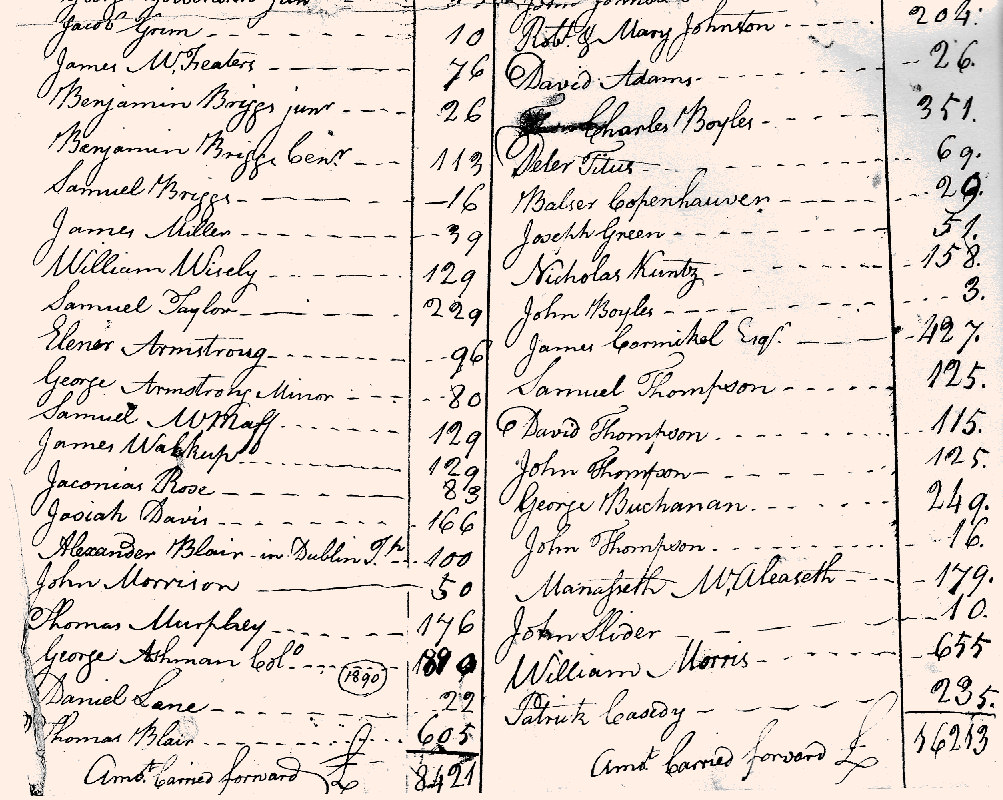 Jacob Grim 10
James McFeaters 76
Benjamin Briggs junr 26
Benjamin Briggs Cenr 113
Samuel Briggs 16
James Miller 39
William Wisely 129
Samuel Taylor 229
Elener Armstroug 96
George Armstrong Minor 80
Samuel McMaff 129
James Walkup 129
Jaconias Rose 83
Josiah Davis 166
Alexander Blair in Dublin T.p 100
John Morrison 50
Thomas Murphey 176
George Ashman Colo. 1890
1890
Daniel Lane 22
Thomas Blair 605
Amot. Carried forward £ 8421
204.
Robt. & Mary Johnson
David Adams 26.
Charles Boyles 351.
Peter Titus 69.
Balser Copenhauven 29.
Joseph Green 51.
Nicholas Kuntz 158.
John Boyles 3.
James Cormikel Esqr. 427.
Samuel Thompson 125.
David Thompson 115.
John Thompson 125.
George Buchanan 249.
John Thompson 16.
Manasseth McAleaseth 179.
John Slider 10.
William Morris 655
Patrick Casedy 235.
Amot. Carried forward £ 16213